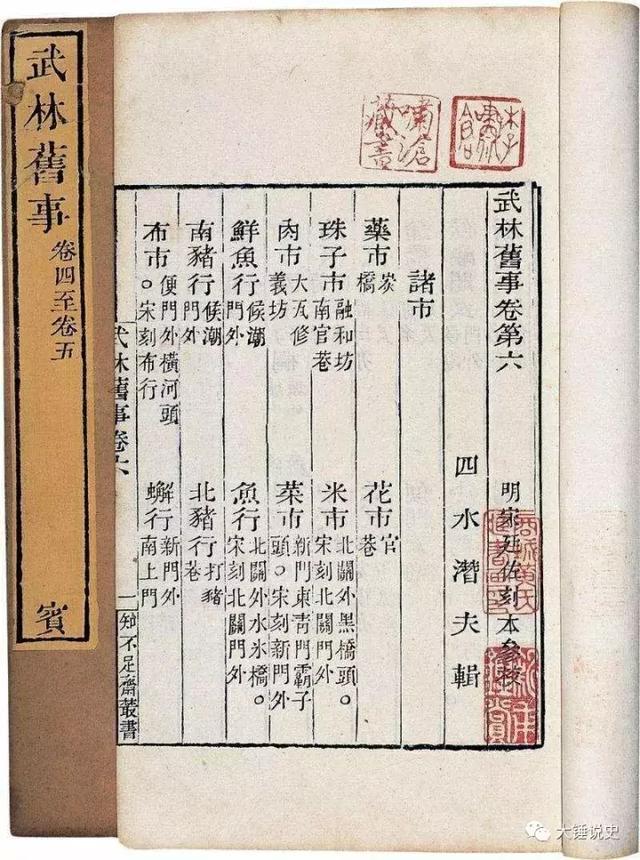 武林舊事
卷四至卷五
賓
武林舊事卷第六
明宋廷佐刻本參校
四水潛夫輯
諸市
藥市 炭橋
花市 官巷
珠子市 融和坊南官巷
米市 北關外黑橋頭。宋刻北關門外
肉市 大瓦修義坊
菜市 新門東青門霸子頭。宋刻新門外
鮮魚行 候潮門外
魚行 北關外水氷橋。宋刻北關門外
南豬行 候潮門外
北豬行 打豬巷
布市 便門外橫河頭。宋刻布行
蟹行 新門外南上門
武林舊事卷六
一
知不足齋叢書
嘯滄藏書
大锤说史